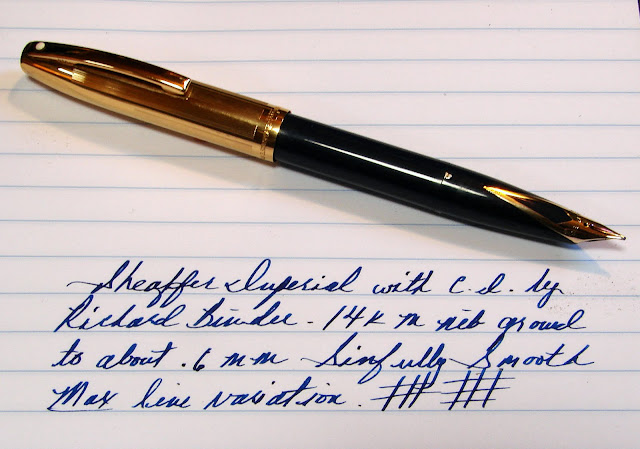 Sheaffer Imperial with C.I. by
Richard Binder - 14K M nib ground
to about .6 mm Sinfully Smooth
Max line variation.